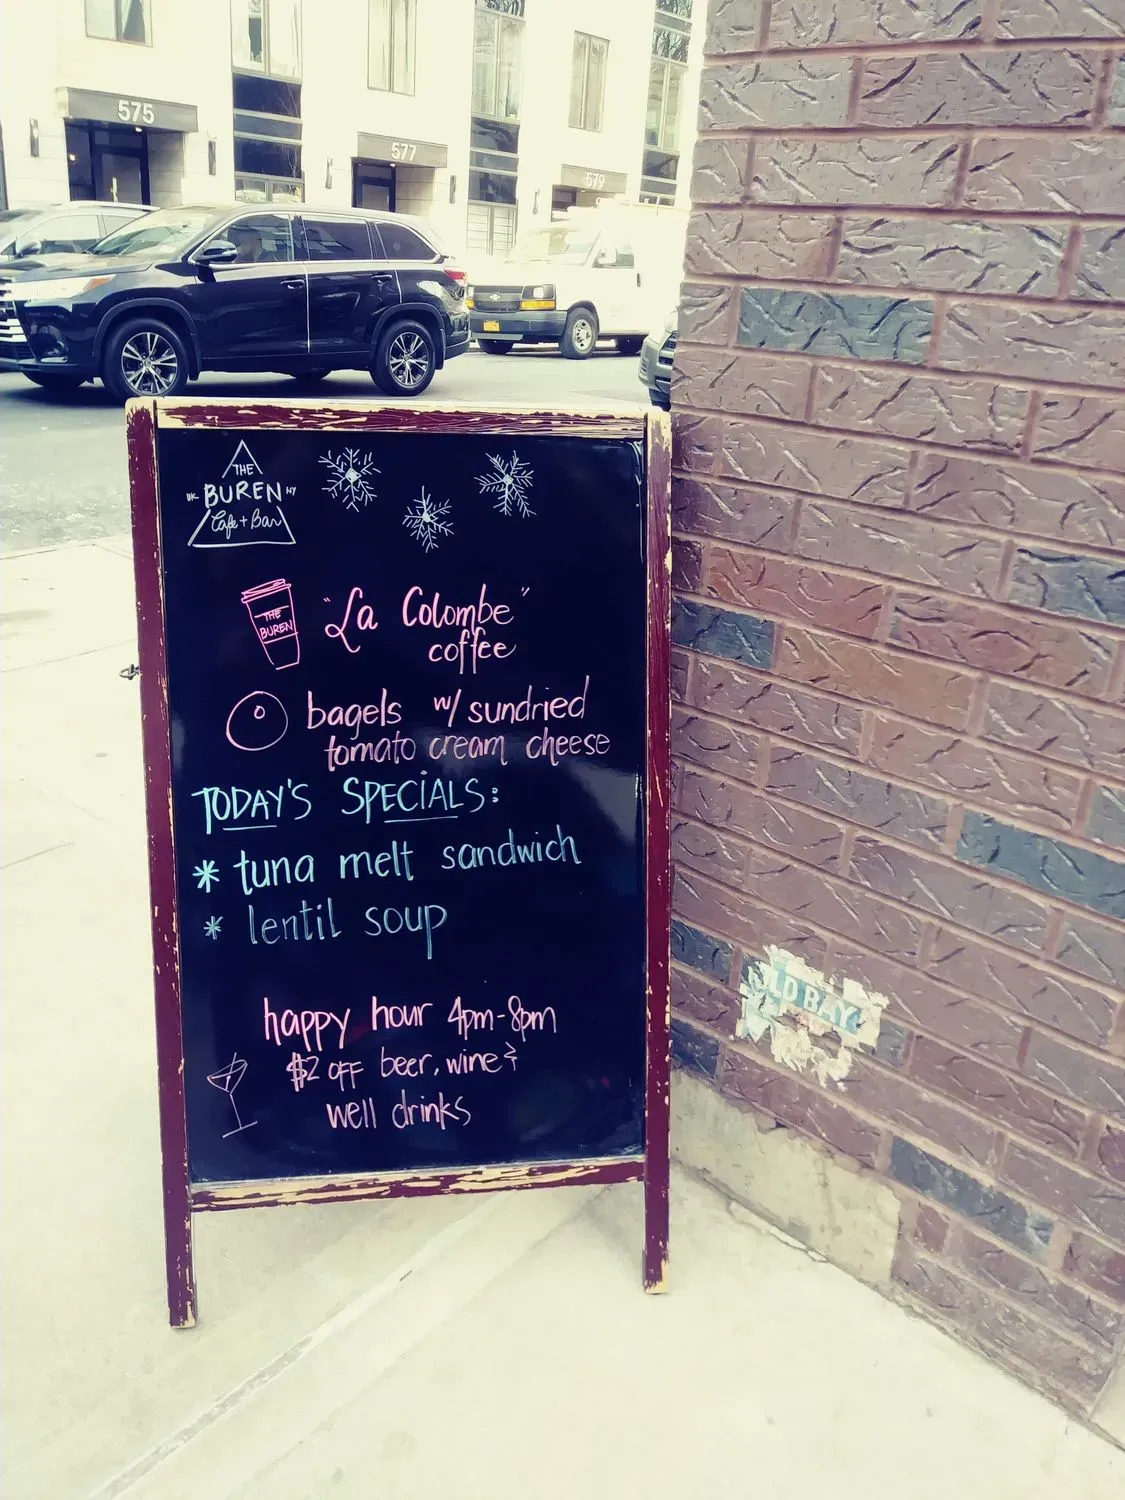 575
577
579
THE
BK BUREN NY
Cafe + Bar
THE
BUREN
"La Colombe"
coffee
bagels w/ sundried
tomato cream cheese
TODAY'S SPECIALS:
* tuna melt sandwich
* lentil soup
happy hour 4pm-8pm
$2 OFF beer, wine &
well drinks
LD BAY